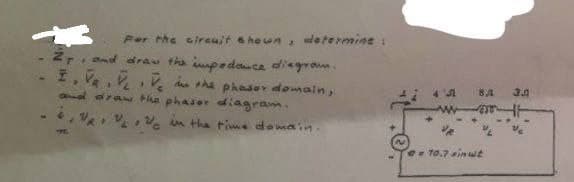 For the circuit shown, determine :
- Z̄T, and draw the impedance diagram.
- Ī, V̄R, V̄L, V̄C in the phasor domain,
and draw the phasor diagram.
- i, vR, vL, vC in the time domain.
i 4 Ω 8Ω 3Ω
+ - + - + -
vR vL vC
+
-
e = 70.7 sin ωt